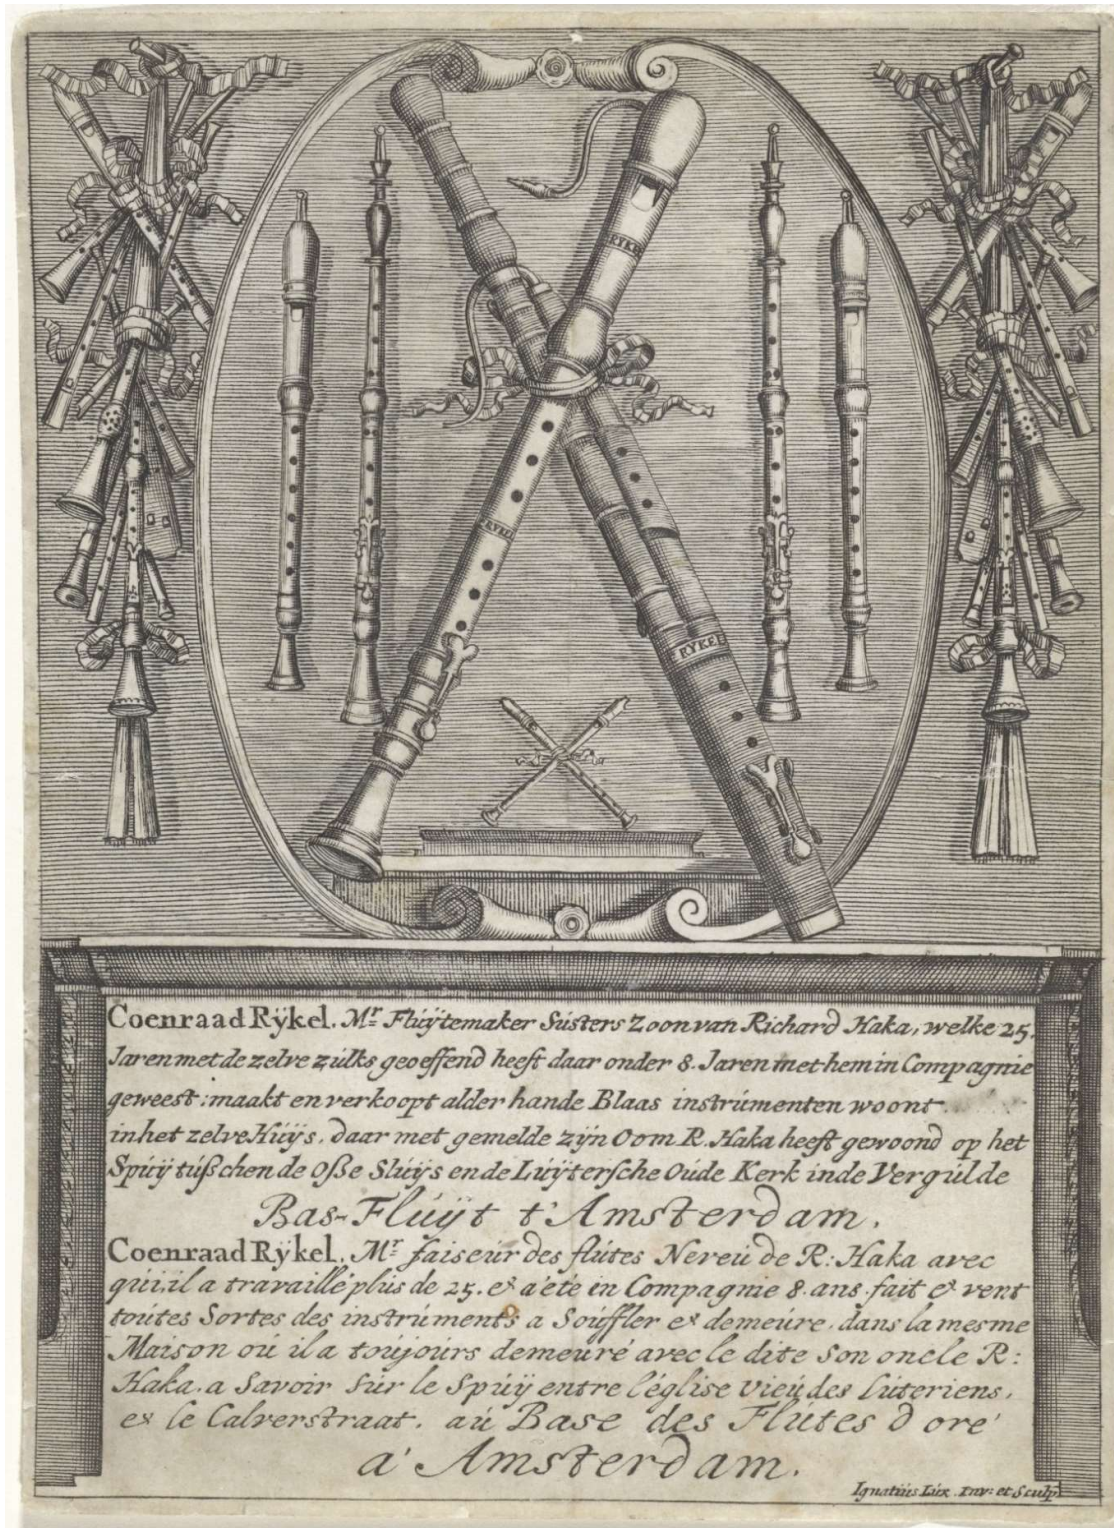 RYKEL
RYKEL
RYKEL
Coenraad Rÿkel. Mr. Flúÿtemaker Sústers Zoon van Richard Haka, welke 25.
Jaren met de zelve zúlks geoeffend heeft daar onder 8. Jaren met hem in Compagnie
geweest: maakt en verkoopt alder hande Blaas instrúmenten woont
in het zelve Húÿs. daar met gemelde zÿn Oom R. Haka heeft gewoond op het
Spúÿ túßchen de Oße Slúÿs en de Lúÿtersche Oúde Kerk in de Vergúlde
Bas-Flúÿt t'Amsterdam.
Coenraad Rÿkel. Mr. faiseúr des flútes Nereú de R: Haka avec
qúi.il a travaillé plús de 25. et a été in Compagnie 8. ans. fait et vent
toútes Sortes des instrúments a Soúffler et demeúre. dans la mesme
Maison oú il a toújoúrs demeúré avec le dite Son oncle R:
Haka. a Savoir súr le Spúÿ entre l'église vieú des Lúteriens,
et le Calverstraat. aú Base des Flútes d'oré
a' Amsterdam.
Ignatiús Lúx. Inv: et Sculp